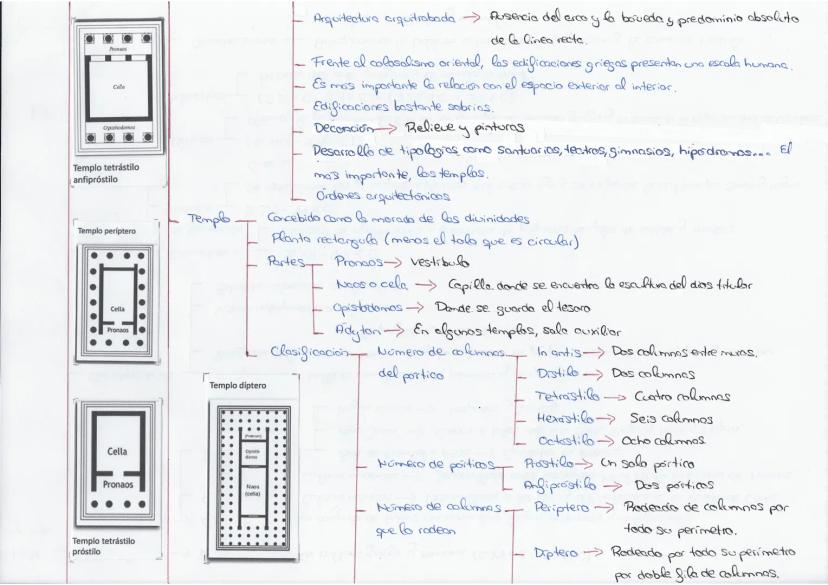 Pronaos
Cella
Opistodomos
Templo tetrástilo
anfipróstilo
Templo períptero
Cella
Pronaos
Cella
Pronaos
Templo tetrástilo
próstilo
Templo díptero
(Pronaos)
Opisto
domos
Naos
(cella)
Arquitectura arquitrabada → Ausencia del arco y la bóveda y predominio absoluto
de la línea recta.
Frente al colosalismo oriental, las edificaciones griegas presentan una escala humana.
Es más importante la relación con el espacio exterior al interior.
Edificaciones bastante sobrias.
Decoración → Relieve y pinturas
Desarrollo de tipologías como santuarios, teatros, gimnasios, hipódromos... El
más importante, los templos.
Órdenes arquitectónicos
Templo
Concebido como la morada de las divinidades
Planta rectangula (menos el tolo que es circular)
Partes
Pronaos → vestíbulo
Naos o cela → Capilla donde se encuentra la escultura del dios titular
Opistodomos → Donde se guarda el tesoro
Ádyton → En algunos templos, sala auxiliar
Clasificación
Número de columnas
del pórtico
In antis → Dos columnas entre muros.
Dístilo → Dos columnas
Tetrástilo → Cuatro columnas
Hexástilo → Seis columnas
Octóstilo → Ocho columnas
Número de pórticos
Próstilo → Un solo pórtico
Anfipróstilo → Dos pórticos
Número de columnas
que lo rodean
Períptero → Rodeado de columnas por
todo su perímetro.
Díptero → Rodeado por todo su perímetro
por doble fila de columnas.